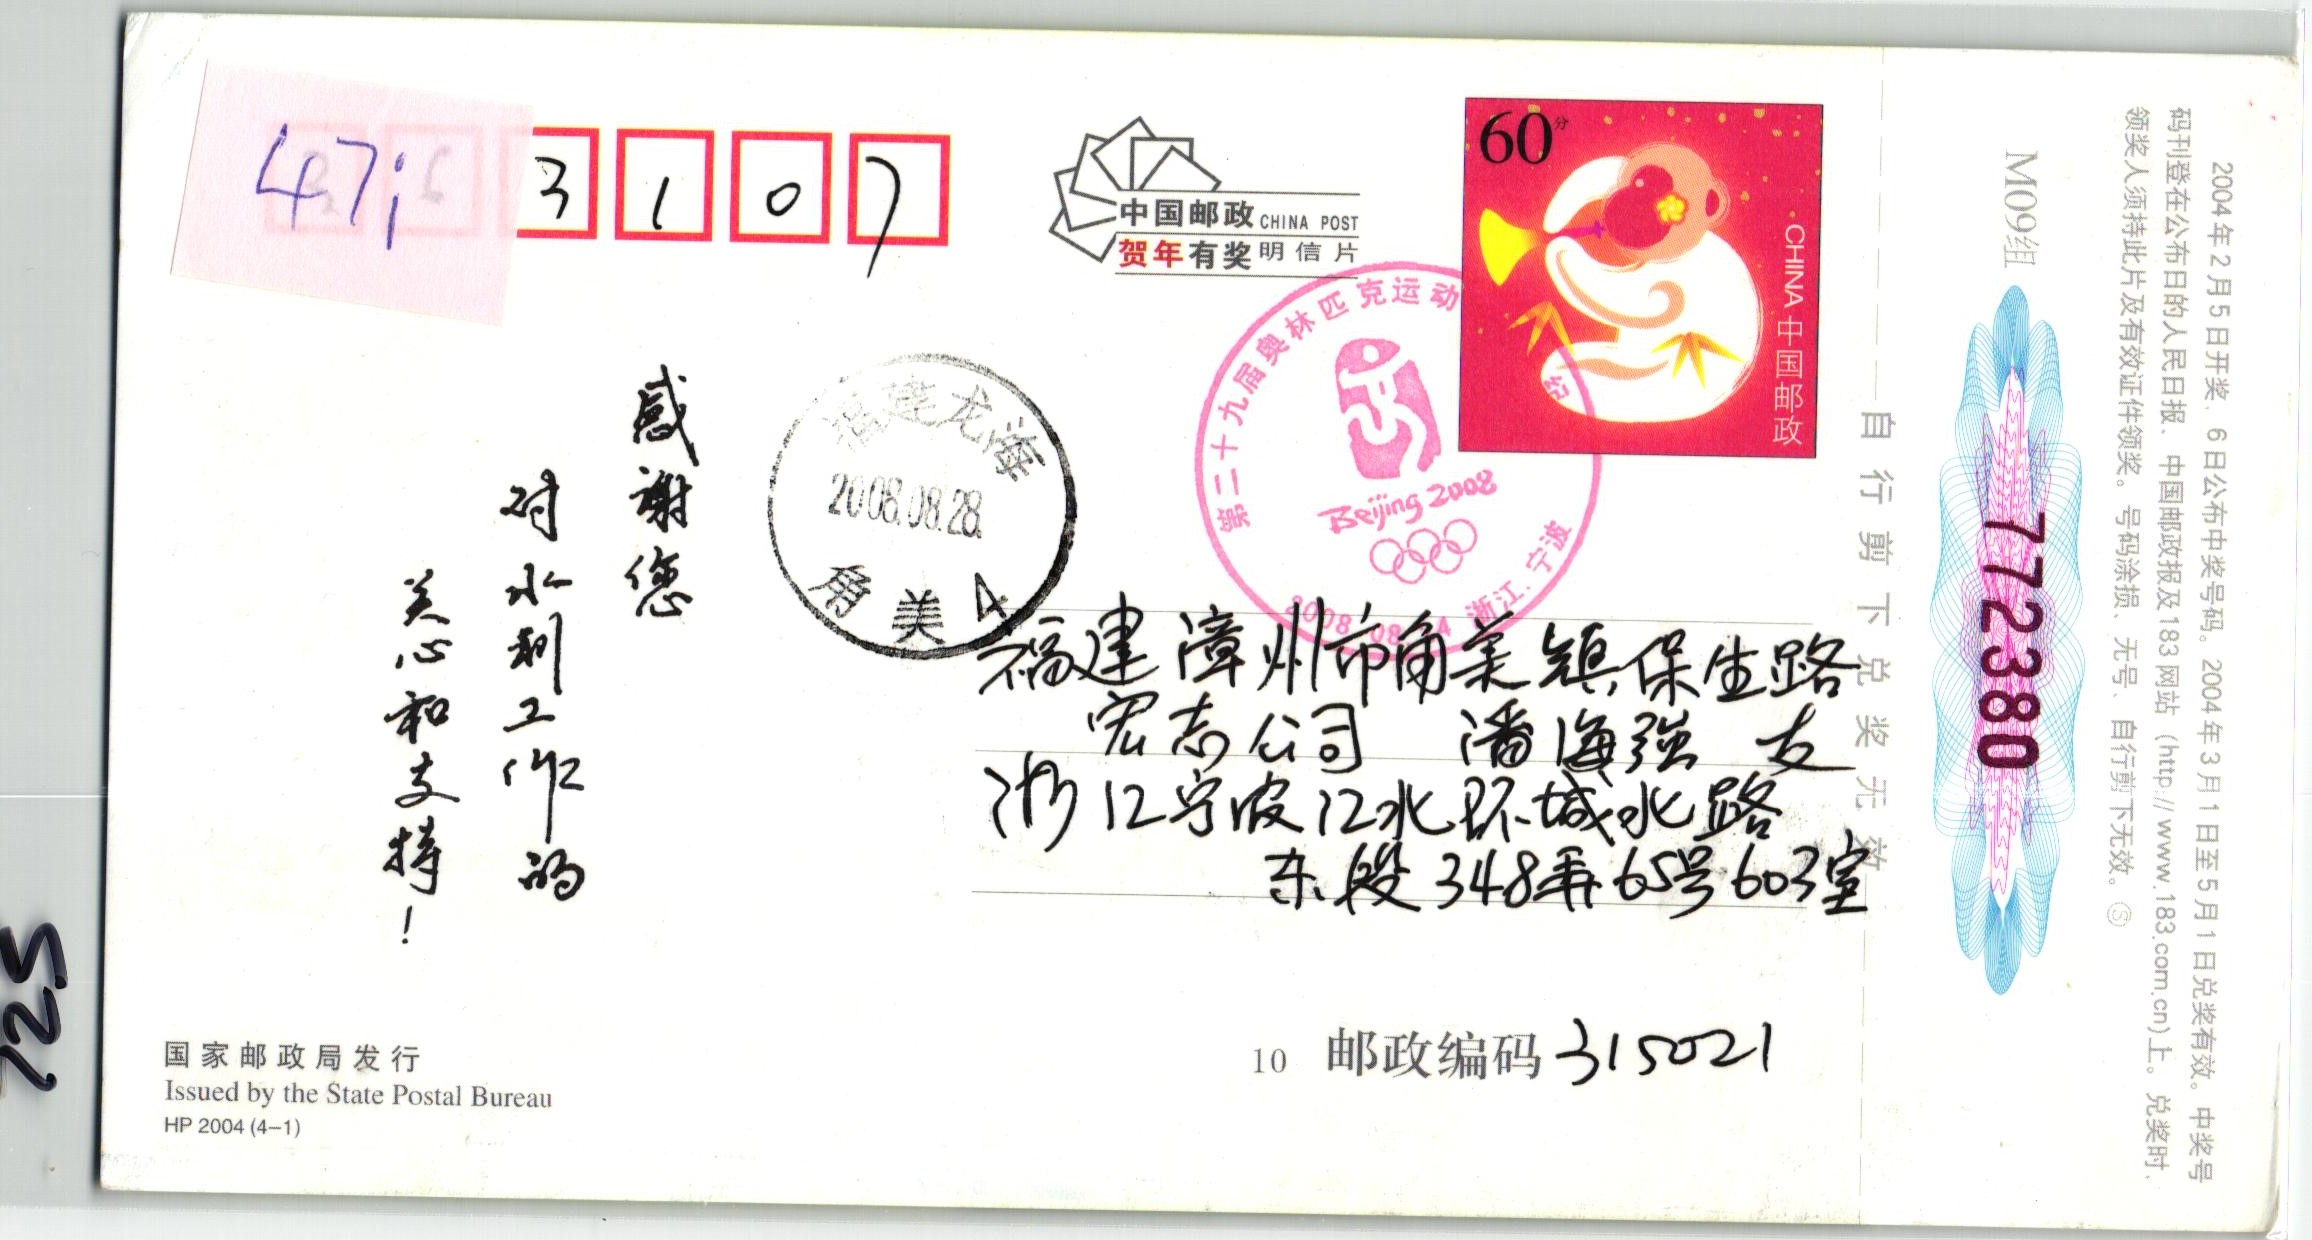 47;
3107
中国邮政 CHINA POST
贺年有奖明信片
60分
CHINA 中国邮政
第二十九届奥林匹克运动
纪
Beijing 2008
2008 08
浙江.宁波
福建龙海
2008.08.28.
角美4
感谢您
对水利工作的
关心和支持!
福建漳州市角美镇保生路
宏志公司 潘海强
浙江宁波江北环城北路
东段348弄65号603室
10 邮政编码 315021
国家邮政局发行
Issued by the State Postal Bureau
HP 2004 (4-1)
自行剪下兑奖无效
M09组
772380
2004年2月5日开奖,6日公布中奖号码。2004年3月1日至5月1日兑奖有效。中奖号
码刊登在公布日的人民日报、中国邮政报及183网站(http://www.183.com.cn)上。兑奖时,
领奖人须持此片及有效证件领奖。号码涂损、无号、自行剪下无效。Ⓢ
725